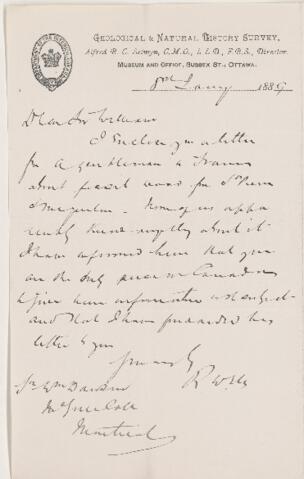 GEOLOGICAL & NATURAL HISTORY SURVEY,
Alfred R. C. Selwyn, C.M.G., L.L.D., F.R.S., Director.
MUSEUM AND OFFICE, SUSSEX ST., OTTAWA.
8th Jany 1889
Dear Sir William
I enclose you a letter
for a gentleman in France
about fossil wood
None of us appa
rently know anything about it
I have informed him that you
are the only person in Canada
to give him information on the subject
and that I have forwarded his
letter to you
Yours truly
Sr Wm Dawson
McGill Coll
Montreal